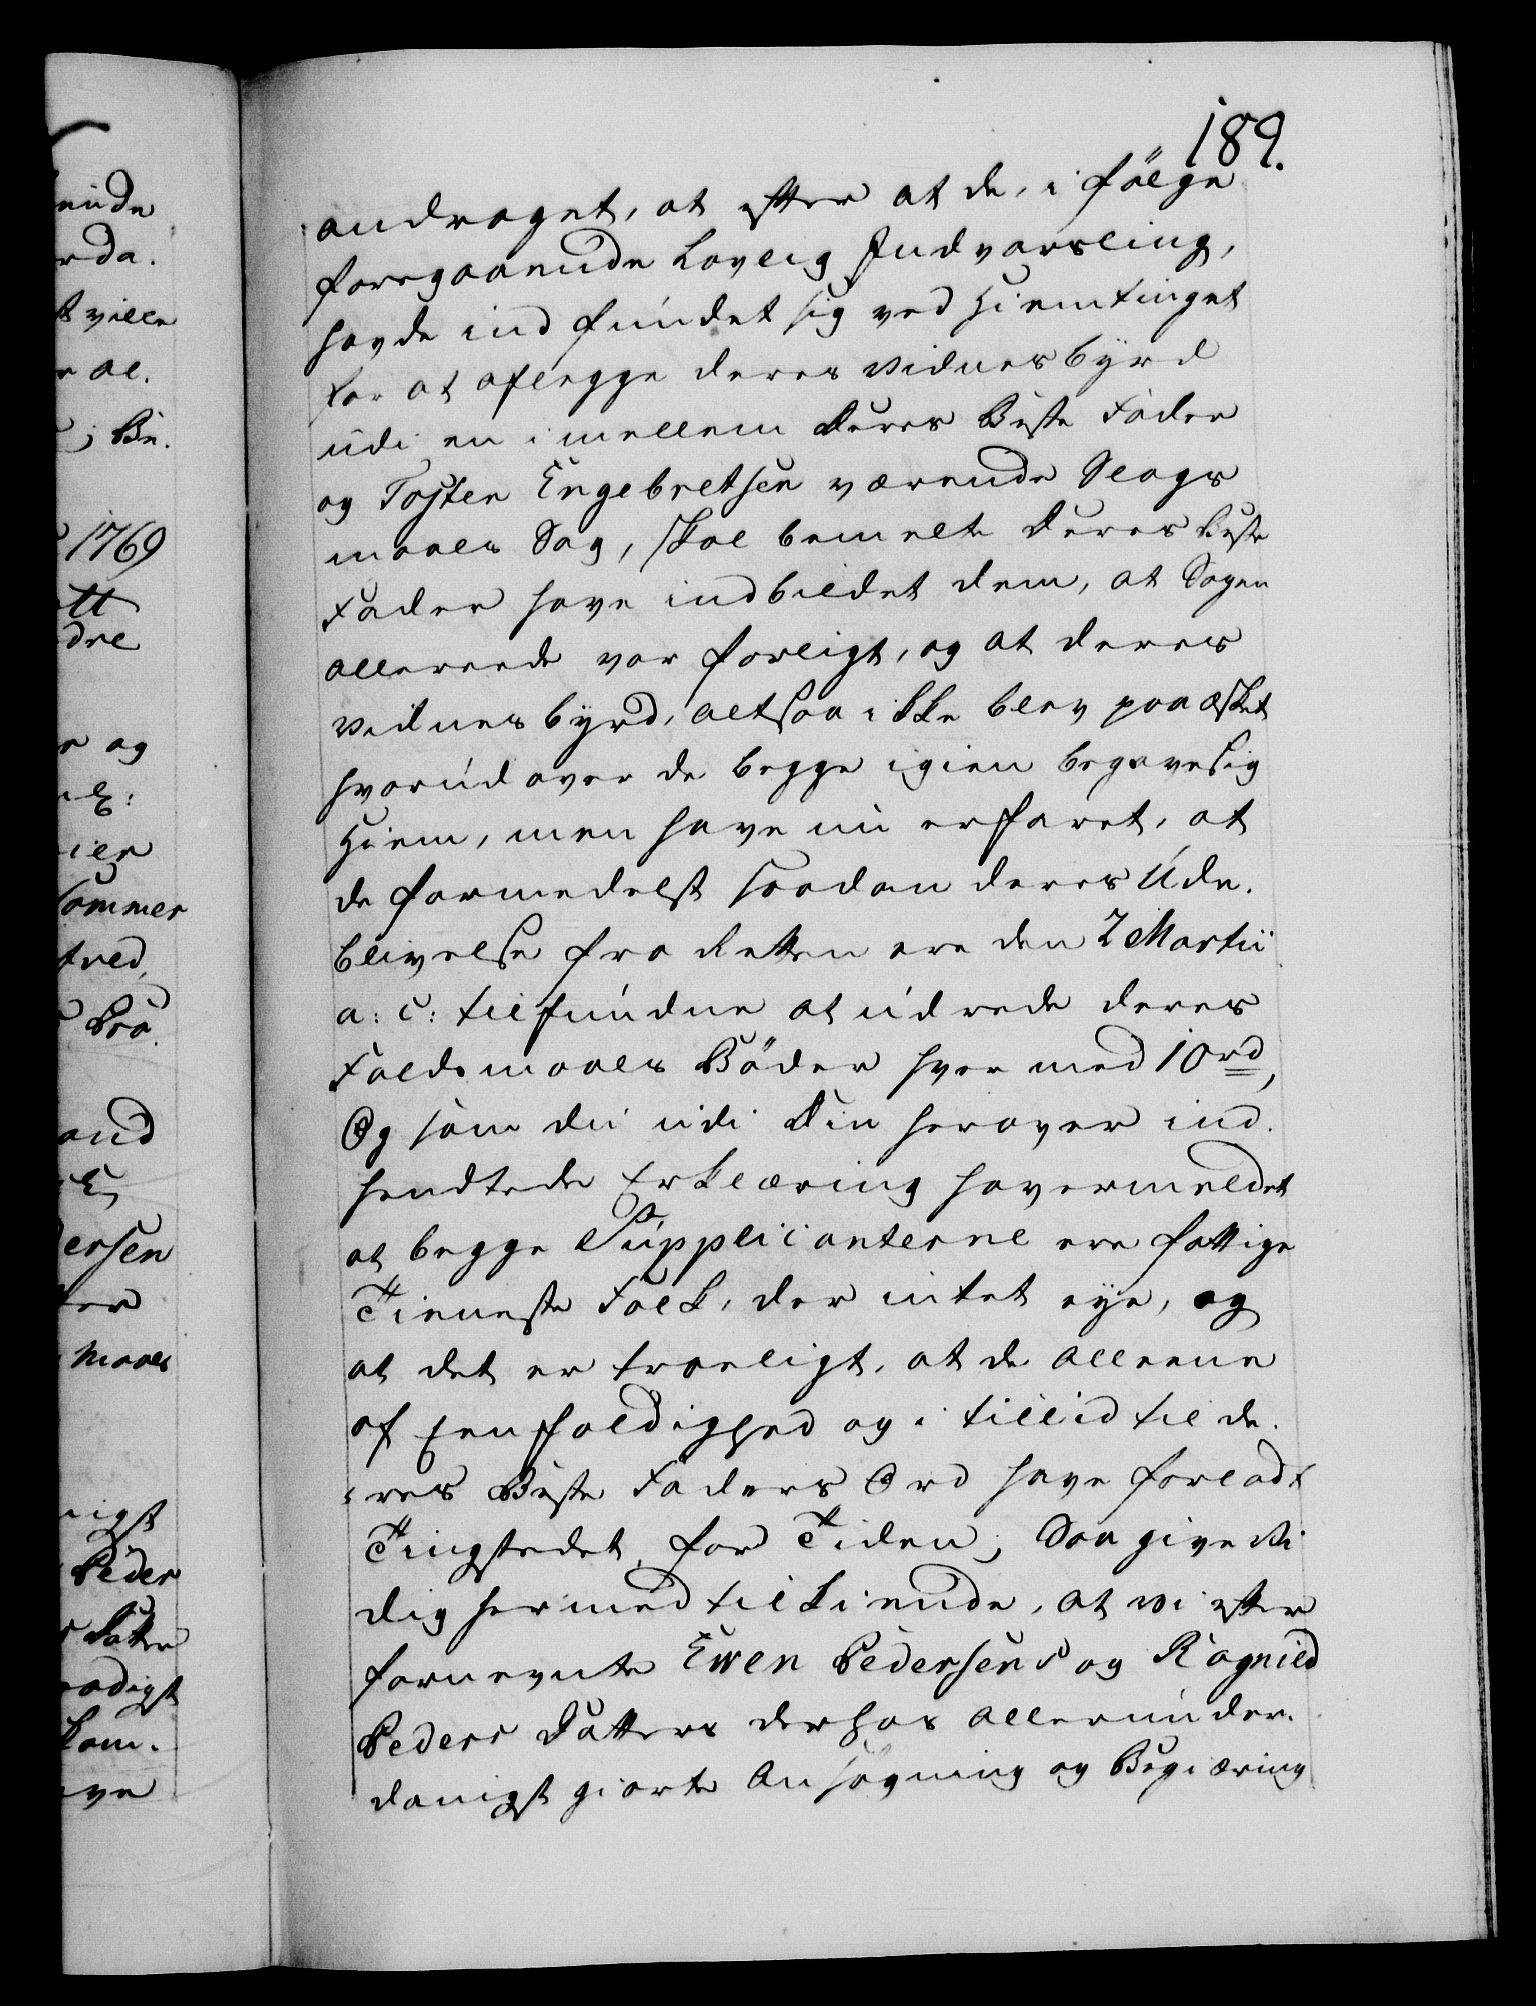 189.
andraget, at efter at de, i følge
foregaaende Lovlig Indvarsling,
havde ind fundet sig ved Hiemtinget
for at aflegge deres Vidnesbyrd
udi en imellem deres Beste Fader
og Tosten Engebretsen værende Slags
maals Sag, skal bemelte deres Beste
Fader have indbildet dem, at Sagen
allereede var forligt, og at deres
Vidnesbyrd, altsaa ikke blev paaæsket
hvorudover de begge igien begave sig
Hiem, men have nu erfaret, at
de formedelst saadan deres Ude.
blivelse fra Retten ere den 2 Martii
a: c: tilfundne at udrede deres
Faldsmaals Bøder hver med 10 rd,
Og som du udi Din herover ind.
sendtede Erklæring haver meldet
at begge Supplicanterne ere fattige
Tieneste Folk, der intet eye, og
at det er troeligt, at de alleene
af Eenfoldighed og i tillid til de.
res Beste Faders Ord have forladt
Tingstedet for Tiden; Saa give Vi
dig hermed tilkiende, at Vi efter
fornevnte Ewen Pedersens og Ragnild
Peders Datters derhos allerunder.
danigst giorte Ansøgning og Begiæring
ende
rda.
st ville
r al.
; Be.
1769
ott
dre
r og
ier
Sommer
tred,
Brö.
and
ersen
ter
maals
nigst
Peder
s Datter
aadigst
kom.
ave